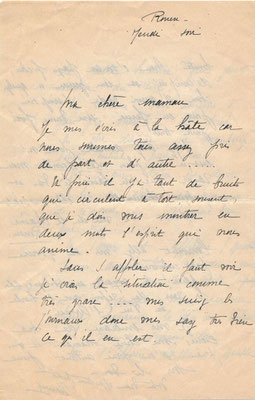 Rouen -
Jeudi soir
Ma chère maman
Je vous écris à la hâte car
nous sommes tous assez pris
de part et d'autre .....
Et puis il y a tant de bruits
qui circulent à tort souvent
que je dois vous montrer en
deux mots l'esprit qui nous
anime.
Sans s'affoler il faut voir
je crois la situation comme
très grave .... vous suivez les
journaux donc vous savez très bien
ce qu'il en est